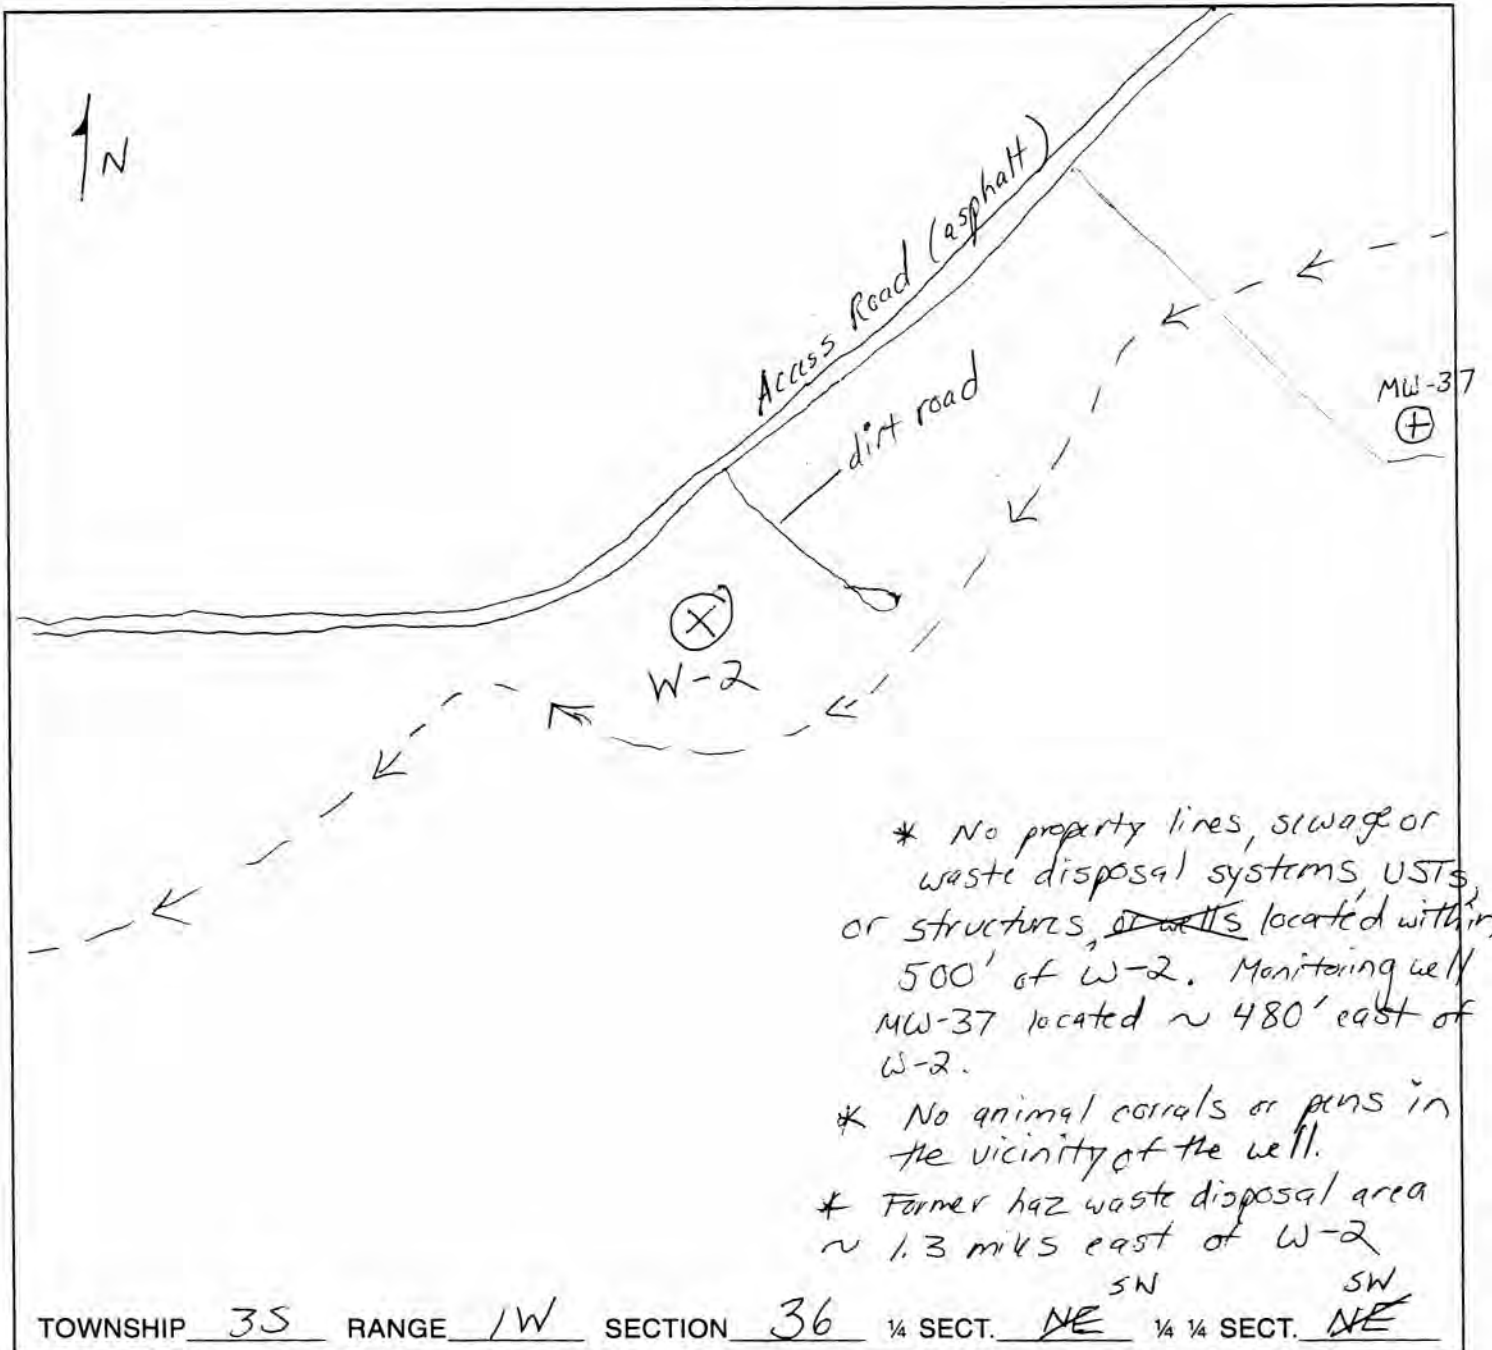 N
Access Road (asphalt)
dirt road
MW-37
W-2
* No property lines, sewage or
waste disposal systems, USTs,
or structures, or wells located within
500' of W-2. Monitoring well
MW-37 located ~ 480' east of
W-2.
* No animal corrals or pens in
the vicinity of the well.
* Former haz waste disposal area
~ 1.3 miles east of W-2
SW SW
TOWNSHIP 3S RANGE 1W SECTION 36 ¼ SECT. NE ¼ ¼ SECT. NE